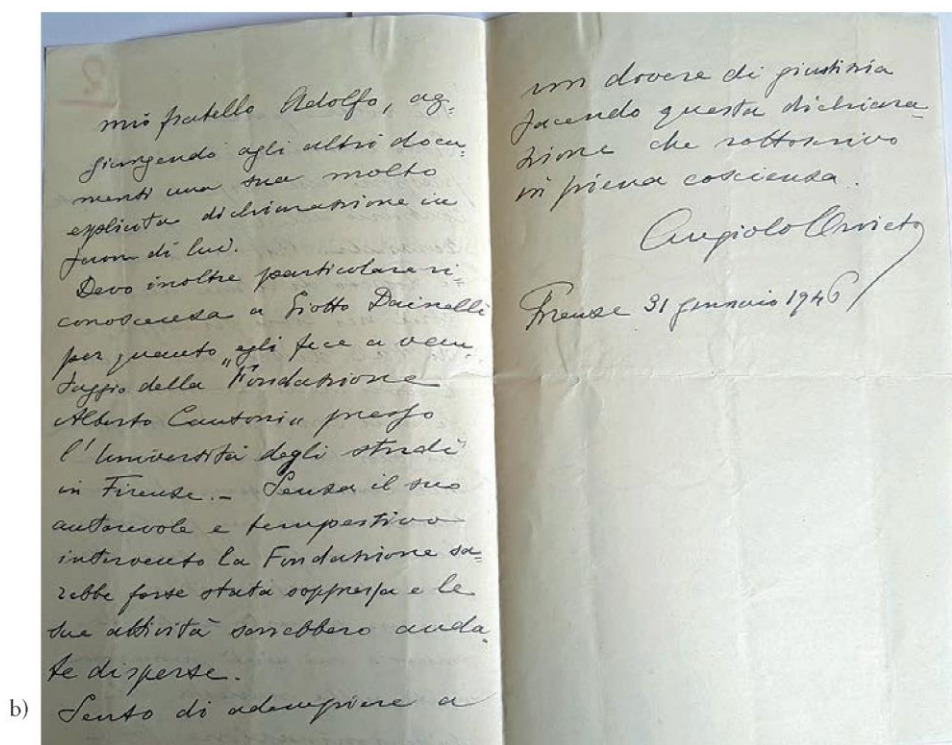 2
mio fratello Adolfo, ag=
giungendo agli altri docu=
menti una sua molto
esplicita dichiarazione in
favore di lui.
Devo inoltre particolare ri=
conoscenza a Giotto Dainelli
per quanto egli fece a van=
taggio della "Fondazione
Alberto Cantoni" presso
l'Università degli studi
in Firenze. - Senza il suo
autorevole e tempestivo
intervento la Fondazione sa=
rebbe forse stata soppressa e le
sue attività sarebbero anda=
te disperse.
Sento di adempiere a
un dovere di giustizia
facendo questa dichiara=
zione che sottoscrivo
in piena coscienza.
Angiolo Orvieto
Firenze 31 gennaio 1946
b)